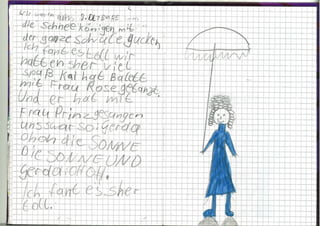 die Schneekönigen mit
der ganze schule gucken
Ich fant es toll wir
hatten sher viel
spaß Kai hat Balett
mit Frau Rose getanzt.
Und er hat mit
Frau Prinz gesangen
uns war so: Gerda
ohoh die SONNE
Die SONNE UND
Gerda
Ich fant es sher
toll.